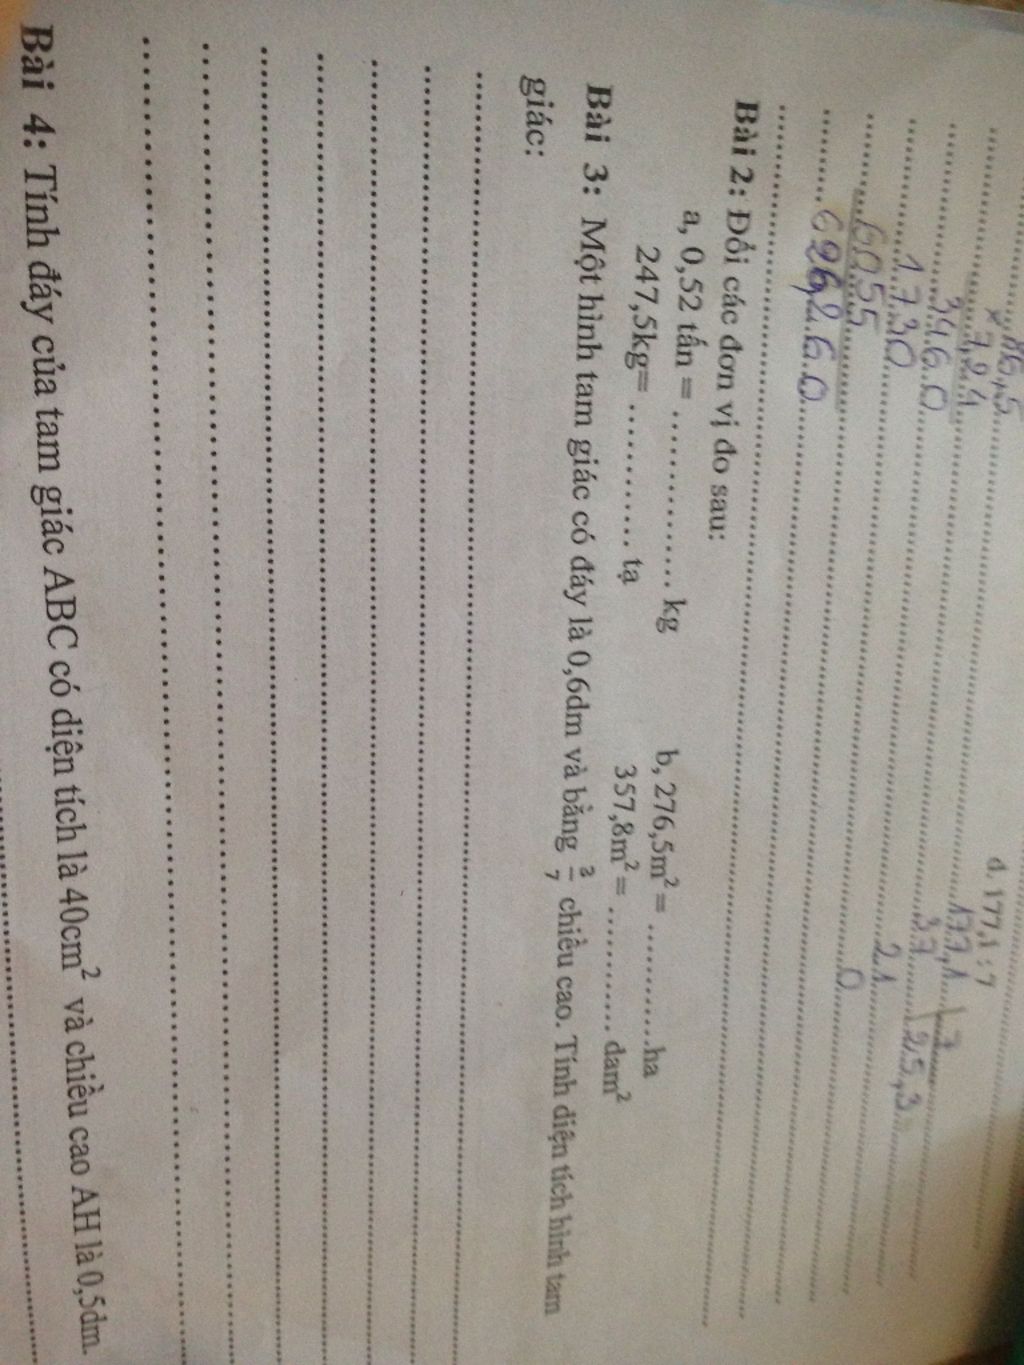 86,5
d. 177,1 : 7
× 7,2,4
177,1 7
3460
37 25,3
1730
21
6055
0
626,260
Bài 2: Đổi các đơn vị đo sau:
a, 0,52 tấn = .............. kg b, 276,5m² = ............ha
247,5kg= ............ tạ 357,8m² = ............ dam²
Bài 3: Một hình tam giác có đáy là 0,6dm và bằng 3/7 chiều cao. Tính diện tích hình tam
giác:
Bài 4: Tính đáy của tam giác ABC có diện tích là 40cm² và chiều cao AH là 0,5dm.